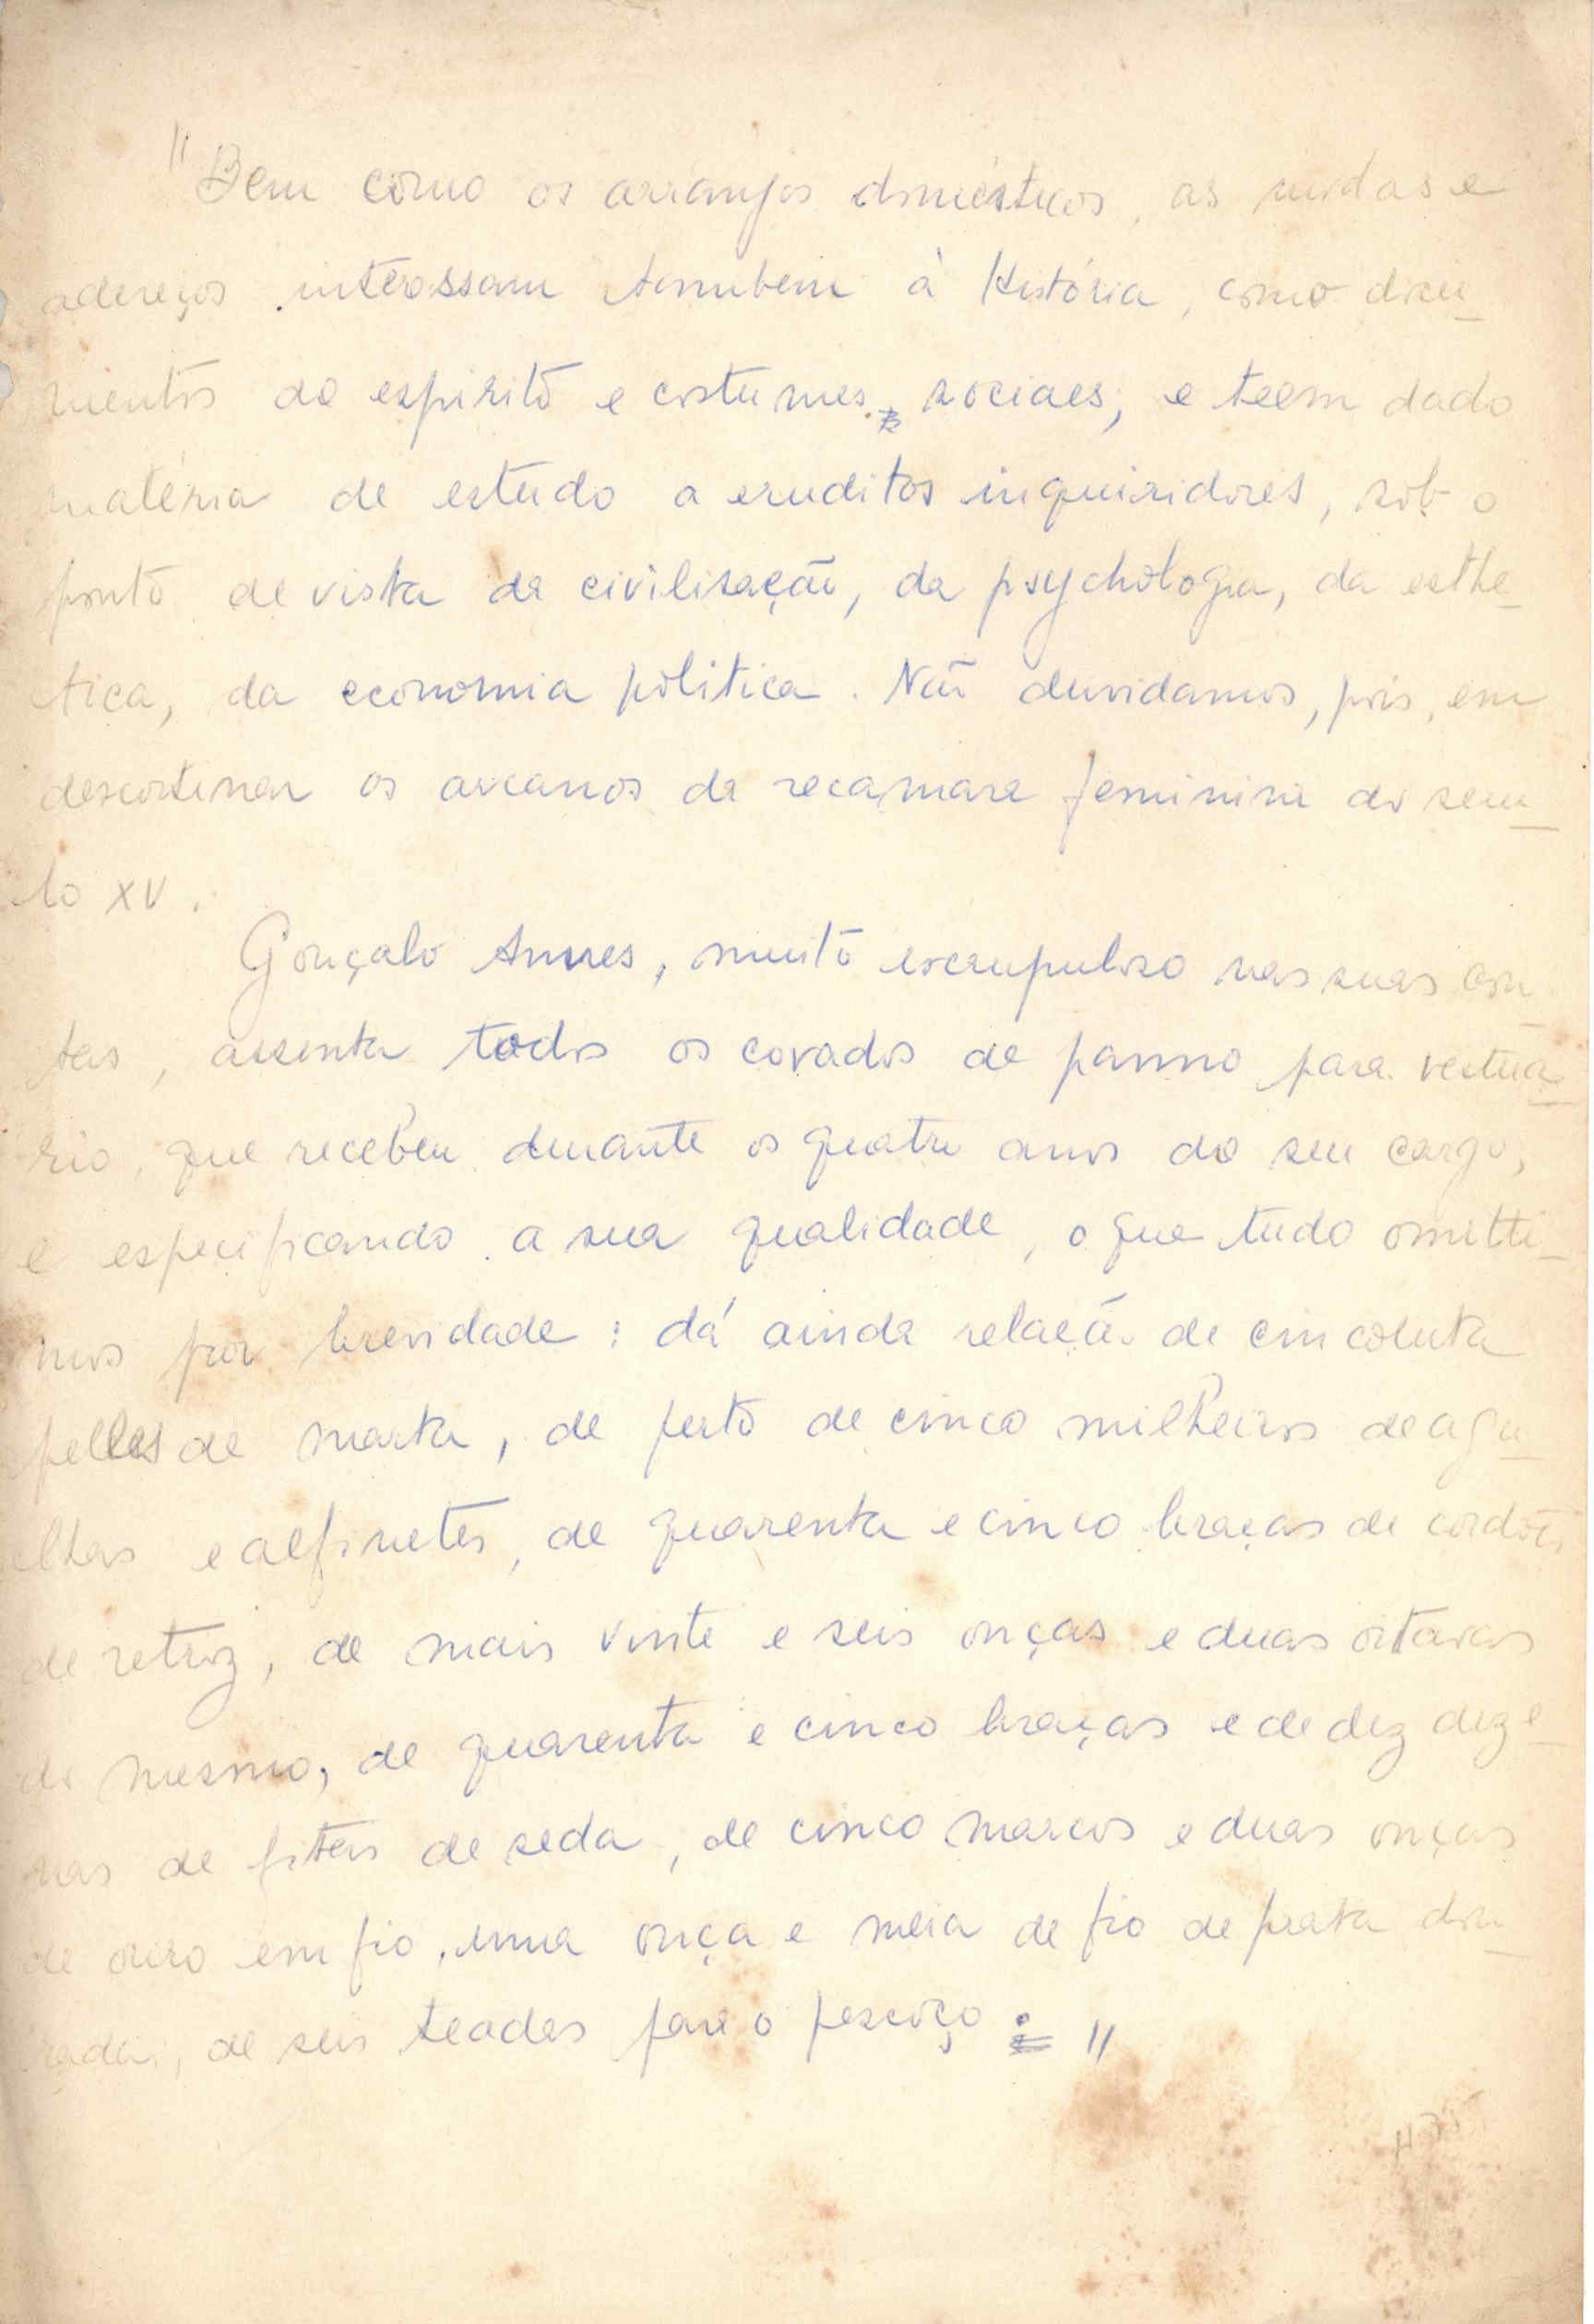 "Bem como os arranjos domésticos, as modas e
adereços interessam tambem à História, como docu_
mentos do espirito e costumes sociaes; e teem dado
matéria de estudo a eruditos inquiridores, sob o
ponto de vista da civilisação, da psychologia, da esthe_
tica, da economia politica. Não duvidamos, pois, em
descortinar os arcanos da recamara feminina do secu_
lo XV.
Gonçalo Annes, muito escrupuloso nas suas con_
tas, assenta todos os covados de panno para vestua_
rio, que recebeu durante os quatro anos do seu cargo,
e especificando a sua qualidade, o que tudo omitti_
mos por brevidade: dá ainda relação de cincoenta
pelles de marta, de perto de cinco milheiros de agu_
lhas e alfinetes, de quarenta e cinco braças de cordões
de retroz, de mais vinte e seis onças e duas oitavas
do mesmo, de quarenta e cinco braças e de dez deze_
nas de fitas de seda, de cinco marcos e duas onças
de ouro em fio, uma onça e meia de fio de prata dou_
rada, de seis teadas para o pescoço: "